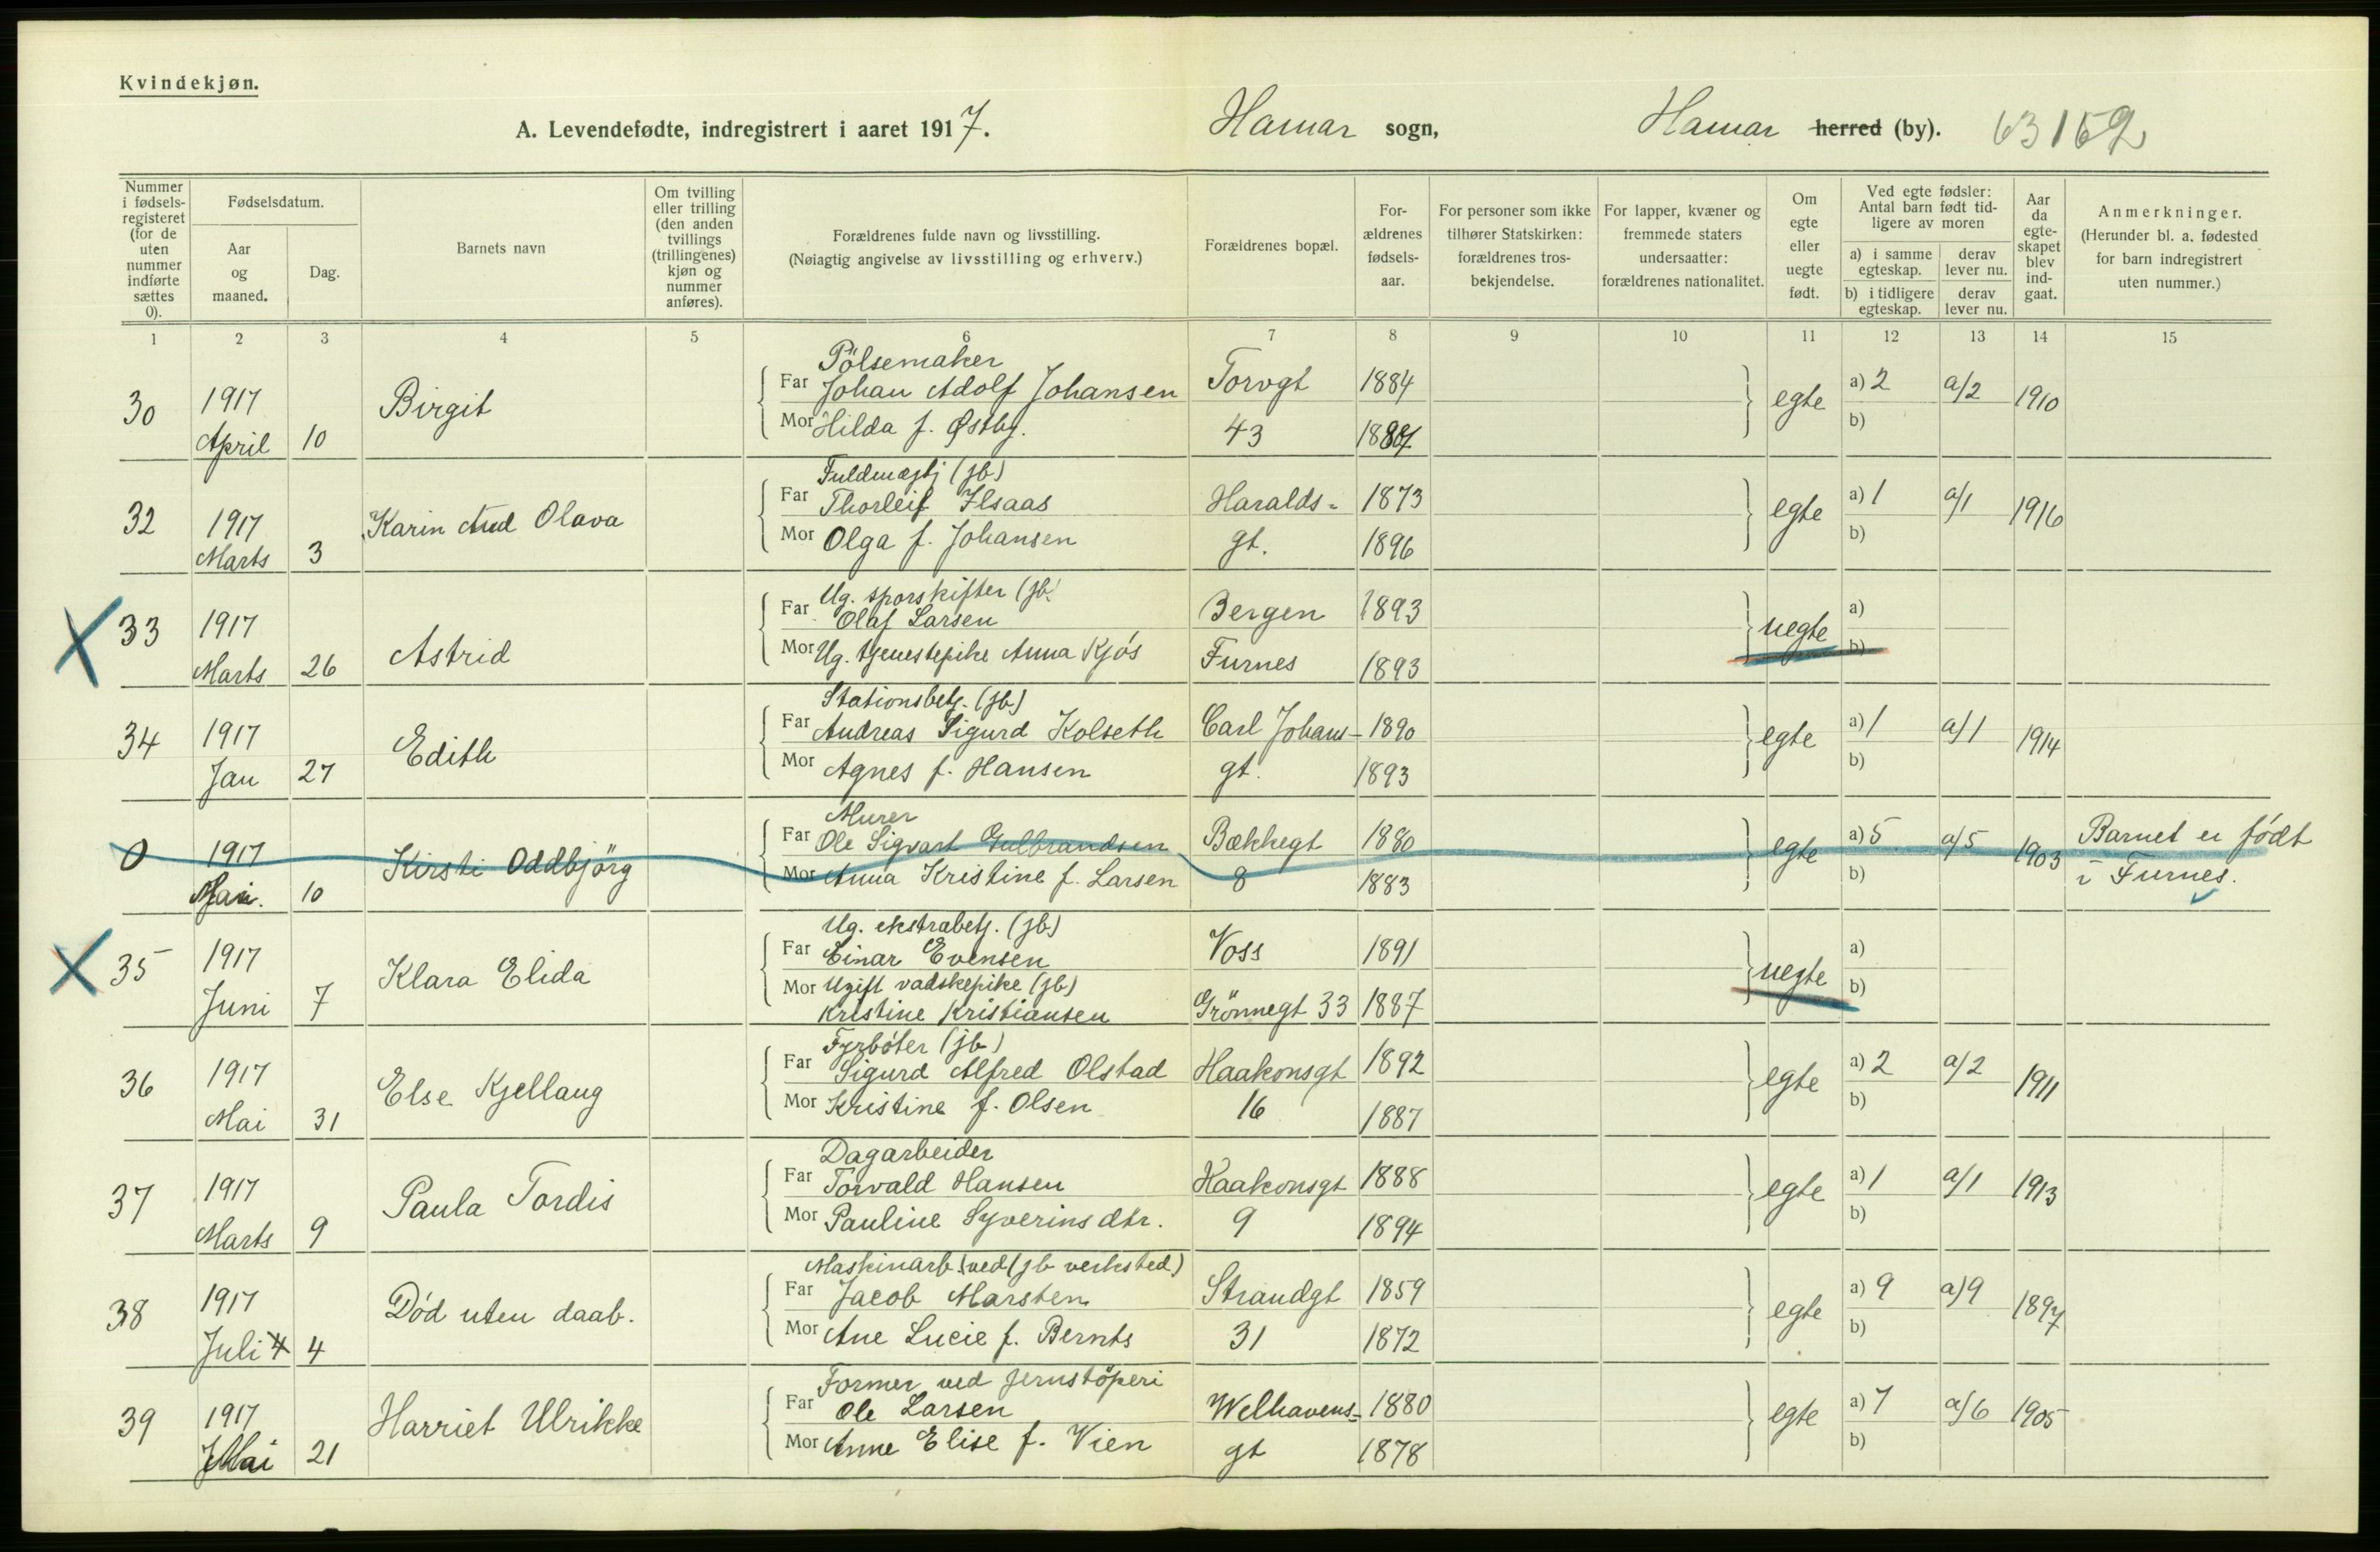 Kvindekjøn.
A. Levendefødte, indregistrert i aaret 1917. Hamar sogn, Hamar herred (by). 63 152
Nummer i fødselsregisteret (for de uten nummer indførte sættes 0).
Fødselsdatum.
Aar og maaned.
Dag.
Barnets navn
Om tvilling eller trilling (den anden tvillings (trillingenes) kjøn og nummer anføres).
Forældrenes fulde navn og livsstilling.
(Nøiagtig angivelse av livsstilling og erhverv.)
Forældrenes bopæl.
Forældrenes fødselsaar.
For personer som ikke tilhører Statskirken: forældrenes trosbekjendelse.
For lapper, kvæner og fremmede staters undersaatter: forældrenes nationalitet.
Om egte eller uegte født.
Ved egte fødsler: Antal barn født tidligere av moren
a) i samme egteskap. derav lever nu.
b) i tidligere egteskap. derav lever nu.
Aar da egteskapet blev indgaat.
Anmerkninger.
(Herunder bl. a. fødested for barn indregistrert uten nummer.)
1 2 3 4 5 6 7 8 9 10 11 12 13 14 15
Pölsemaker
30 1917 Birgit Far Johan Adolf Johansen Torvgt 1884 egte a) 2 a/2 1910
April 10 Mor Hilda f. Østby. 43 b)
Fuldmægtj (jb)
32 1917 Karin Aud Olava Far Thorleif Ilsaas Haralds- 1873 egte a) 1 a/1 1916
Marts 3 Mor Olga f. Johansen gt. 1896 b)
Ug. sporskifter (jb)
33 1917 Astrid Far Olaf Larsen Bergen 1893 uegte a)
Marts 26 Mor Ug. tjenestepike Anna Kjös Furnes 1893 b)
Stationsbetj. (jb)
34 1917 Edith Far Andreas Sigurd Kolseth Carl Johans- 1890 egte a) 1 a/1 1914
Jan 27 Mor Agnes f. Hansen gt. 1893 b)
Murer
0 1917 Kirsti Oddbjörg Far Ole Sigvart Gulbrandsen Bækkegt 1880 egte a) 5 a/5 1903 Barnet er födt
Mai. 10 Mor Anna Kristine f. Larsen 8 1883 b) i Furnes.
Ug. ekstrabetj. (jb)
35 1917 Klara Elida Far Einar Evensen Voss 1891 uegte a)
Juni 7 Mor Ugift vadskepike (jb) b)
Kristine Kristiansen Grönnegt 33 1887
Fyrböter (jb)
36 1917 Else Kjellaug Far Sigurd Alfred Olstad Haakonsgt 1892 egte a) 2 a/2 1911
Mai 31 Mor Kristine f. Olsen 16 1887 b)
Dagarbeider
37 1917 Paula Tordis Far Torvald Hansen Haakonsgt 1888 egte a) 1 a/1 1913
Marts 9 Mor Pauline Syverinsdtr. 9 1894 b)
Maskinarb. ved (jb verksted)
38 1917 Död uten daab. Far Jacob Marsten Strandgt 1859 egte a) 9 a/9 1897
Juli 4 4 Mor Ane Lucie f. Bernts 31 1872 b)
Former ved jernstöperi
39 1917 Harriet Ulrikke Far Ole Larsen Welhavens- 1880 egte a) 7 a/6 1905
Mai 21 Mor Anne Elise f. Vien gt 1878 b)